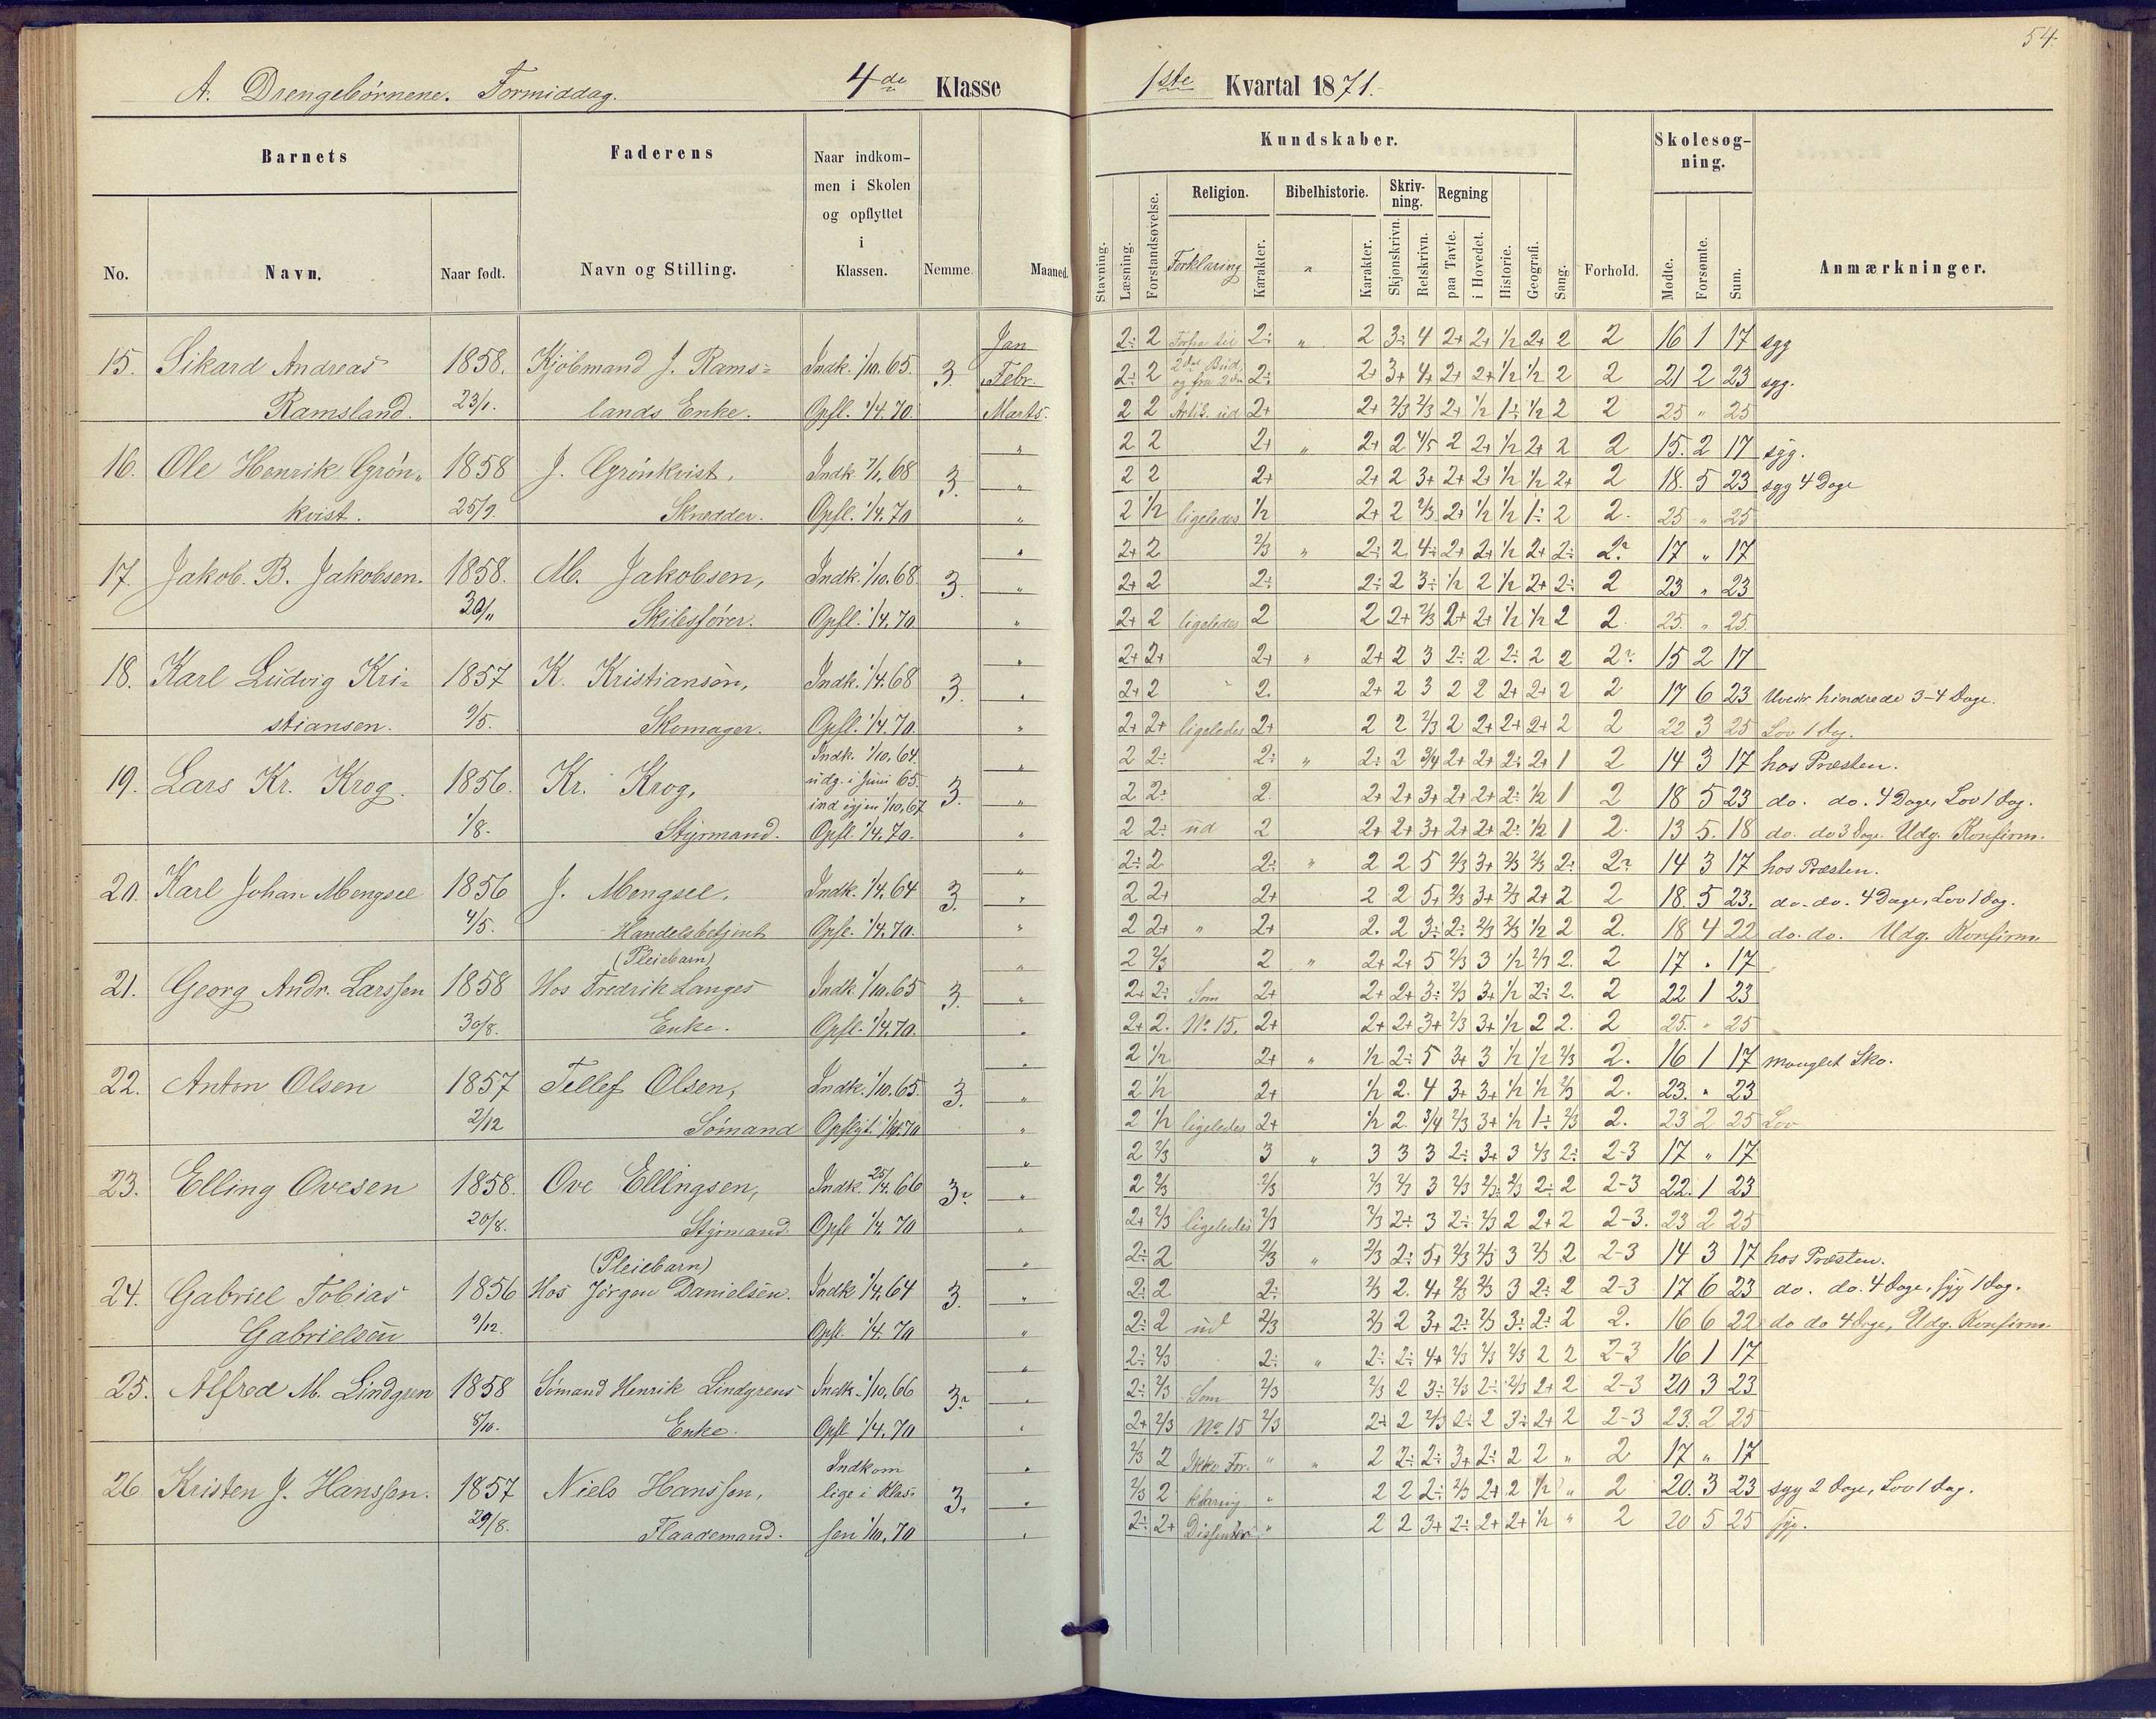 54
A. Drengebørnene. Formiddag. 4de Klasse 1ste Kvartal 1871.
Barnets Faderens Naar indkom- Kundskaber. Skolesøg-
men i Skolen ning.
og opflyttet Religion. Bibelhistorie. Skriv- Regning
i ning.
No. Navn. Naar født. Navn og Stilling. Klassen. Nemme Maaned. Stavning. Læsning. Forstandsøvelse. Forklaring Karakter. " Karakter. Skjønskrivn. Retskrivn. paa Tavle. i Hovedet. Historie. Geografi. Sang. Forhold. Mødte. Forsømte. Sum. Anmærkninger.
Jan 2÷ 2 Forfra til 2÷ " 2 3÷ 4 2+ 2+ 1/2 2+ 2 2 16 1 17 syg
15. Sikard Andreas 1858. Kjøbmand J. Rams= Indk. 1/10. 65. 3. Febr. 2÷ 2 2det Bud og fra 2den 2÷ 2+ 3+ 4+ 2+ 2+ 1/2 1/2 2 2 21 2 23 syg.
Ramsland. 23/1. lands Enke. Opfl. 1/4. 70. Marts. 2 2 Artik. ud 2+ 2+ 2/3 2/3 2+ 1/2 1÷ 1/2 2 2 25 " 25
" 2 2 2+ " 2+ 2 4/5 2 2+ 1/2 2+ 2 2 15. 2 17 syg.
16. Ole Henrik Grøn„ 1858 J. Grønkvist, Indk. 7/1. 68 3. " 2 2 2+ 2+ 2 3+ 2+ 2+ 1/2 1/2 2+ 2 18. 5 23 syg 4 Dage
kvist. 25/9. Snedder. Opfl. 1/4. 70 " 2 1/2 ligeledes 1/2 2+ 2 2/3 2+ 1/2 1/2 1÷ 2 2. 25 " 25
" 2+ 2 2/3 " 2÷ 2 4÷ 2+ 2+ 1/2 2+ 2÷ 2? 17 " 17
17. Jakob. B. Jakobsen. 1858. M. Jakobsen, Indk. 1/10. 68 3. " 2+ 2 2÷ 2÷ 2 3÷ 1/2 2 1/2 2+ 2÷ 2 23 " 23
30/11 Skibsfører. Opfl. 1/4. 70 " 2+ 2 ligeledes 2 2 2+ 2/3 2+ 2+ 1/2 1/2 2 2. 25. " 25.
" 2+ 2+ 2+ " 2+ 2 3 2÷ 2 2÷ 2 2 2? 15 2 17
18. Karl Ludvig Kri= 1857 K. Kristiansen, Indk. 1/4. 68 3. " 2+ 2 2. 2+ 2 3 2 2 2+ 2+ 2 2 17 6 23 Uveir hindrede 3-4 Dage.
stiansen. 9/5. Skomager. Opfl. 1/4. 70. " 2+ 2+ ligeledes 2+ 2 2 2/3 2 2+ 2+ 2+ 2 2 22 3 25 Lov 1 Dag.
Indk. 1/10. 64. " 2 2÷ 2÷ " 2÷ 2 3/4 2+ 2+ 2÷ 2+ 1 2 14 3 17 hos Præsten.
19. Lars Kr. Krog. 1856. Kr. Krog, udg. i Juni 65. 3.
ind igjen 1/10. 67 " 2 2÷ 2. 2+ 2+ 3+ 2+ 2+ 2÷ 1/2 1 2 18 5 23 do. do. 4 Dage, Lov 1 Dag.
1/8. Styrmand. Opfl. 1/4. 70. " 2 2÷ ud 2 2+ 2+ 3+ 2+ 2+ 2÷ 1/2 1 2. 13 5. 18 do. do 3 Dage. Udg. Konfirm.
" 2÷ 2 2÷ " 2 2 5 2/3 3+ 2/3 2/3 2÷ 2? 14 3 17 hos Præsten.
20. Karl Johan Mengsel 1856 J. Mengsel, Indk. 1/4. 64 3. " 2 2+ 2+ 2 2 5+ 2/3 3+ 2/3 2+ 2 2 18. 5 23. do. do. 4 Dage, Lov 1 Dag.
4/5. Handelsbetjent Opfl. 1/4. 70. " 2 2+ " 2+ 2. 2 3÷ 2÷ 2/3 2/3 1/2 2 2. 18 4 22 do. do. Udg. Konfirm.
(Pleiebarn) " 2 2/3 2 " 2+ 2+ 5 2/3 3 1/2 2/3 2. 2 17 " 17
21. Georg Andr. Larssen 1858 Hos Fredrik Langes Indk. 1/10. 65 3. " 2+ 2÷ Som 2+ 2+ 2+ 3÷ 2/3 3+ 1/2 2÷ 2. 2 22 1 23
30/8. Enke. Opfl. 1/4. 70. " 2+ 2. No. 15. 2+ 2+ 2+ 3+ 2/3 3+ 1/2 2 2. 2 25. " 25
" 2 1/2 2+ " 1/2 2÷ 5 3+ 3 1/2 1/2 2/3 2. 16 1 17 manglet Sko.
22. Anton Olsen 1857 Tellef Olsen, Indk. 1/10. 65. 3. " 2 1/2 2+ 1/2 2. 4 3+ 3+ 1/2 1/2 2/3 2. 23. " 23
2/12 Sømand Opflyt. 1/4. 70 " 2 1/2 ligeledes 2+ 1/2 2. 3/4 2/3 3+ 1/2 1÷ 2/3 2. 23 2 25 Lov
" 2 2/3 3 " 3 3 3 2÷ 3+ 3 2/3 2÷ 2-3 17 " 17
23. Elling Ovesen 1858. Ove Ellingsen, Indk. 25/4. 66 3? " 2 2/3 2/3 2/3 2/3 3 2/3 2/3 2/3 2÷ 2 2-3 22. 1 23
20/8. Styrmand Opfl 1/4. 70 " 2+ 2/3 ligeledes 2/3 2/3 2÷ 3 2÷ 2/3 2 2+ 2 2-3. 23 2 25
(Pleiebarn) " 2÷ 2 2/3 " 2/3 2÷ 5+ 2/3 2/3 3 2/3 2 2-3 14 3 17 hos Præsten.
24. Gabriel Tobias 1856 Hos Jørgen Danielsen. Indk 1/4. 64 3. " 2÷ 2 2÷ 2/3 2. 4+ 2/3 2/3 3 2÷ 2 2-3 17 6 23 do. do. 4 Dage, syg 1 Dag.
Gabrielsen 9/12. Opfl. 1/4. 70 " 2÷ 2 ud 2/3 2/3 2 3+ 2÷ 2/3 3÷ 2÷ 2 2. 16 6 22 do do 4 Dage, Udg. Konfirm.
" 2÷ 2/3 2÷ " 2÷ 2÷ 4+ 2/3 2/3 2/3 2 2 2-3 16 1 17
25. Alfred M. Lindgren 1858 Sømand Henrik Lindgrens Indk. 1/10. 66 3? " 2÷ 2/3 Som 2/3 2/3 2 3÷ 2/3 2÷ 2/3 2+ 2 2-3 20 3 23
8/10. Enke. Opfl 1/4. 70 " 2+ 2/3 No 15 2/3 2÷ 2 2/3 2÷ 2 3÷ 2+ 2 2-3 23. 2 25
Indkom " 2/3 2 Ikke For- " " 2 2÷ 2÷ 3+ 2÷ 2 2 " 2 17 " 17
26 Kristen J. Hanssen. 1857 Niels Hanssen, lige i Klas- 3. " 2/3 2 klaring " 2 2 2÷ 2/3 2+ 2 1/2 " 2 20. 3 23 syg 2 Dage, Lov 1 Dag.
29/8. Flaademand. sen 1/10. 70 " 2÷ 2+ Dissenter " 2 2 3+ 2÷ 2+ 2+ 1/2 " 2 20 5 25 syg.